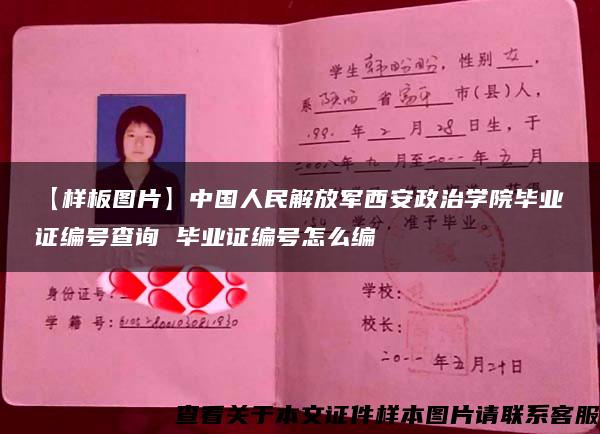 学生韩盼盼，性别女，
系陕西省富平市(县)人，
199 年2月28日生，于
二00八年九月至二0一一年五月
【样板图片】中国人民解放军西安政治学院毕业
证编号查询 毕业证编号怎么编
学分，准予毕业。
身份证号：
学 籍 号：
学校：
校长：
二0一一年五月二十日
查看关于本文证件样本图片请联系客服